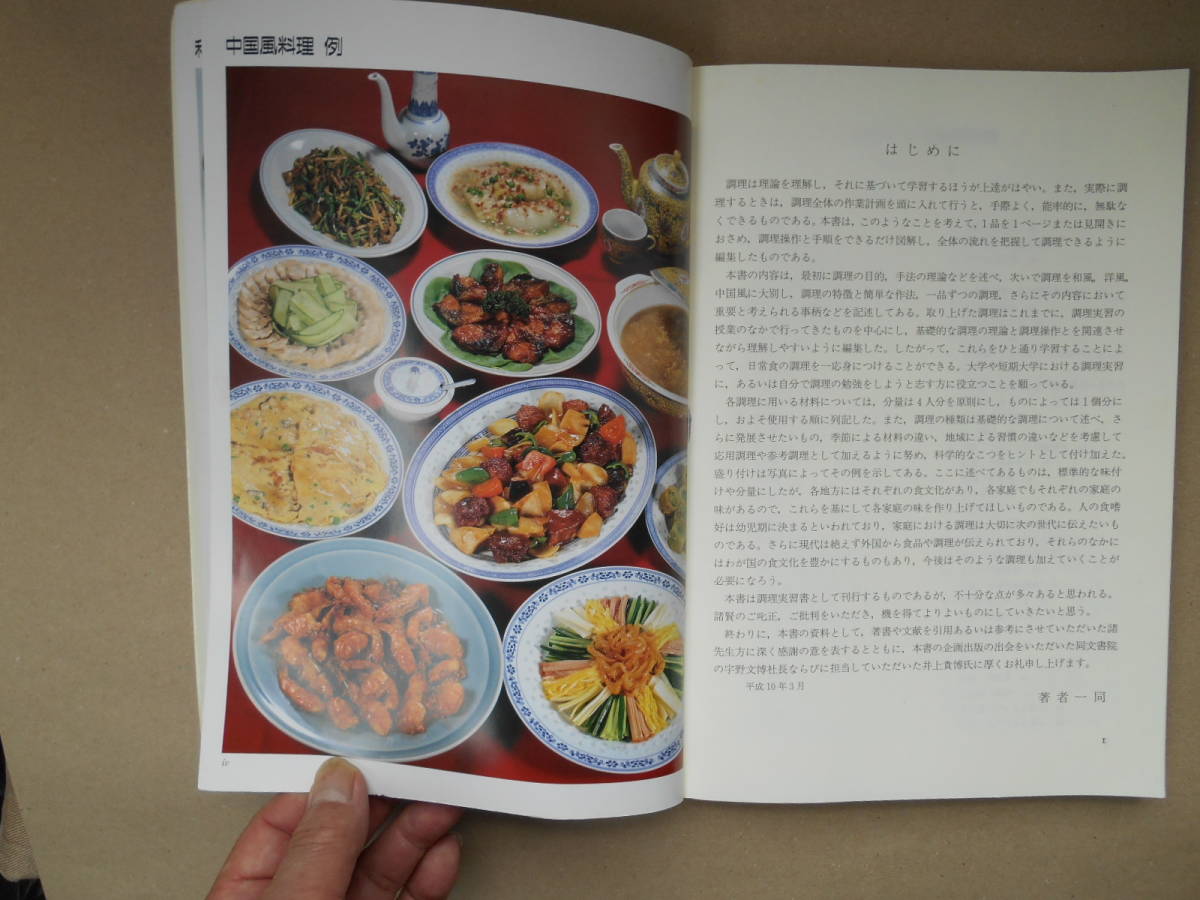 中国風料理 例
iv
はじめに
調理は理論を理解し，それに基づいて学習するほうが上達がはやい。また，実際に調
理するときは，調理全体の作業計画を頭に入れて行うと，手際よく，能率的に，無駄な
くできるものである。本書は，このようなことを考えて，1品を1ページまたは見開きに
おさめ，調理操作と手順をできるだけ図解し，全体の流れを把握して調理できるように
編集したものである。
本書の内容は，最初に調理の目的，手法の理論などを述べ，次いで調理を和風，洋風，
中国風に大別し，調理の特徴と簡単な作法，一品ずつの調理，さらにその内容において
重要と考えられる事柄などを記述してある。取り上げた調理はこれまでに，調理実習の
授業のなかで行ってきたものを中心にし，基礎的な調理の理論と調理操作とを関連させ
ながら理解しやすいように編集した。したがって，これらをひと通り学習することによ
って，日常食の調理を一応身につけることができる。大学や短期大学における調理実習
に，あるいは自分で調理の勉強をしようと志す方に役立つことを願っている。
各調理に用いる材料については，分量は4人分を原則にし，ものによっては1個分に
し，およそ使用する順に列記した。また，調理の種類は基礎的な調理について述べ，さ
らに発展させたいもの，季節による材料の違い，地域による習慣の違いなどを考慮して
応用調理や参考調理として加えるように努め，科学的なこつをヒントとして付け加えた。
盛り付けは写真によってその例を示してある。ここに述べてあるものは，標準的な味付
けや分量にしたが，各地方にはそれぞれの食文化があり，各家庭でもそれぞれの家庭の
味があるので，これらを基にして各家庭の味を作り上げてほしいものである。人の食嗜
好は幼児期に決まるといわれており，家庭における調理は大切に次の世代に伝えたいも
のである。さらに現代は絶えず外国から食品や調理が伝えられており，それらのなかに
はわが国の食文化を豊かにするものもあり，今後はそのような調理も加えていくことが
必要になろう。
本書は調理実習書として刊行するものであるが，不十分な点が多々あると思われる。
諸賢のご叱正，ご批判をいただき，機を得てよりよいものにしていきたいと思う。
終わりに，本書の資料として，著書や文献を引用あるいは参考にさせていただいた諸
先生方に深く感謝の意を表するとともに，本書の企画出版の出会をいただいた同文書院
の宇野文博社長ならびに担当していただいた井上貴博氏に厚くお礼申し上げます。
平成10年3月
著者一同